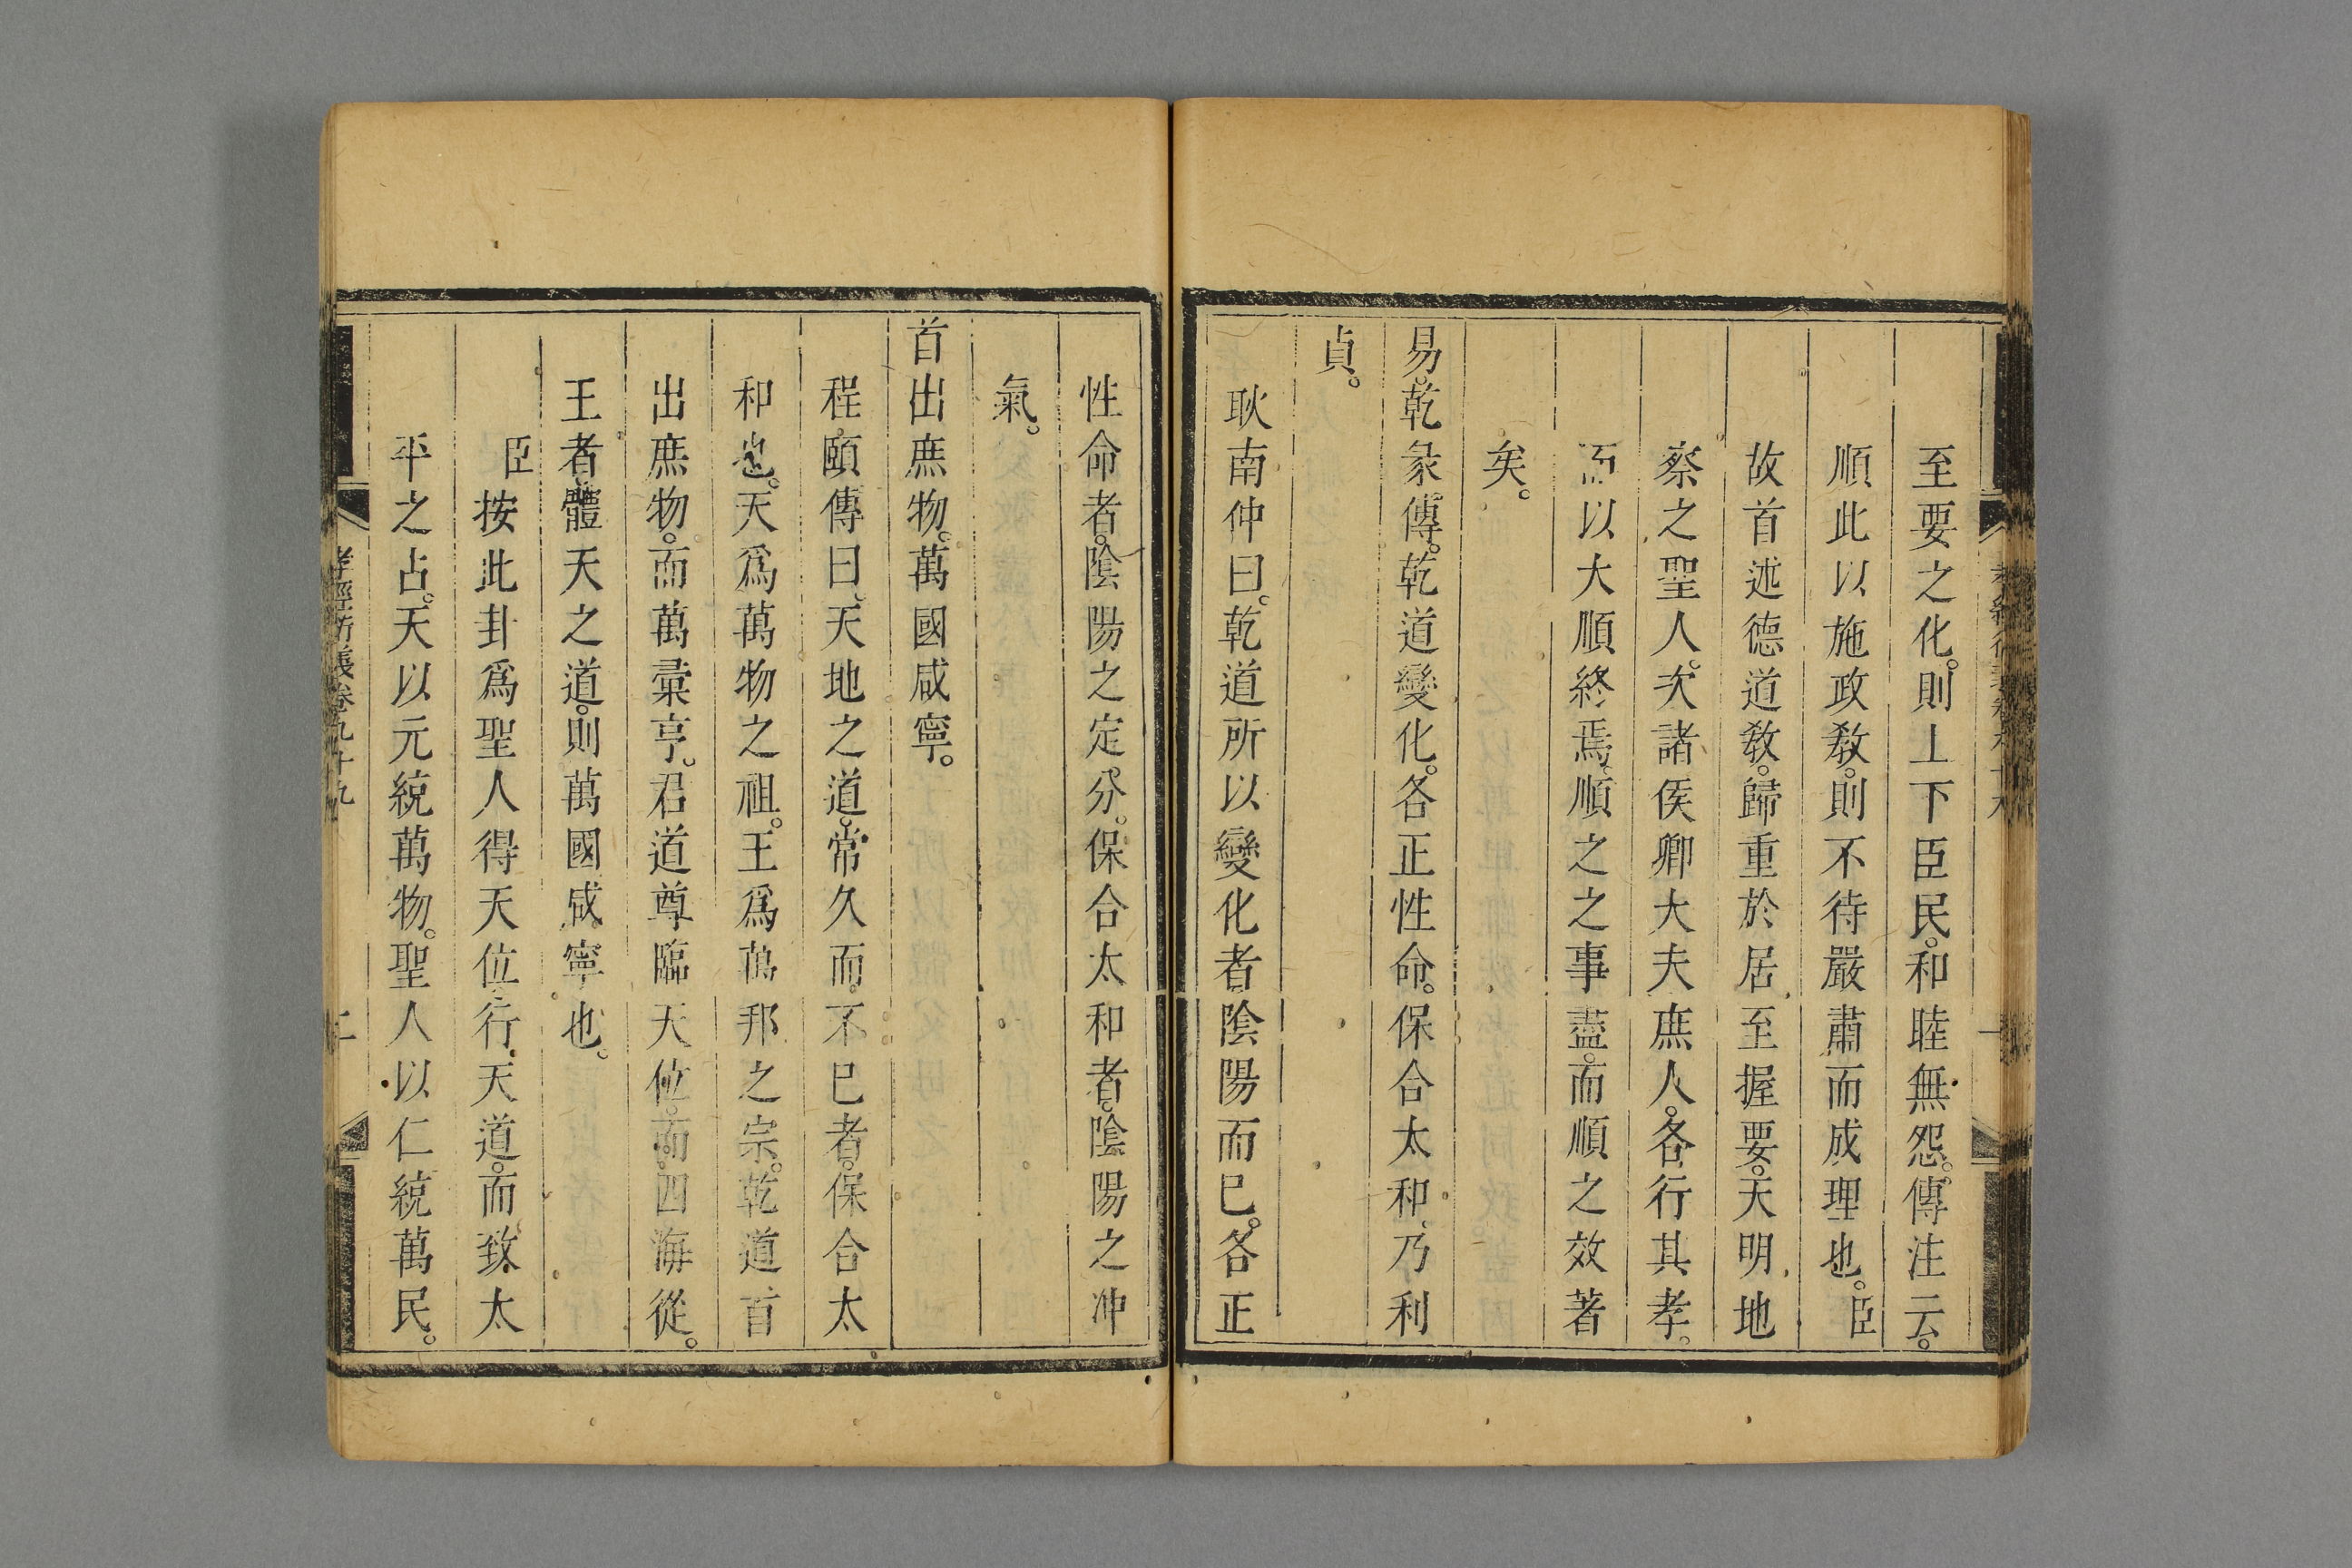 至要之化。則上下臣民。和睦無怨。傳注云。
順此以施政敎。則不待嚴肅而成理也。臣
故首述德道敎。歸重於居至握要。天明地
察之聖人。次諸侯卿大夫庶人。各行其孝。
而以大順終焉。順之之事盡。而順之效著
矣。
易。乾彖傳。乾道變化。各正性命。保合太和、乃利
貞。
耿南仲曰。乾道所以變化者、陰陽而已。各正
性命者。陰陽之定分。保合太和者。陰陽之冲
氣。
首出庶物。萬國咸寧。
程頤傳曰、天地之道。常久而不已者。保合太
和也。天爲萬物之祖。王爲萬邦之宗。乾道首
出庶物。而萬彙亨。君道尊臨天位。而四海從。
王者體天之道。則萬國咸寧也。
臣按此卦爲聖人得天位、行天道。而致太
平之占。天以元統萬物。聖人以仁統萬民。
孝經衍義卷九十九
二